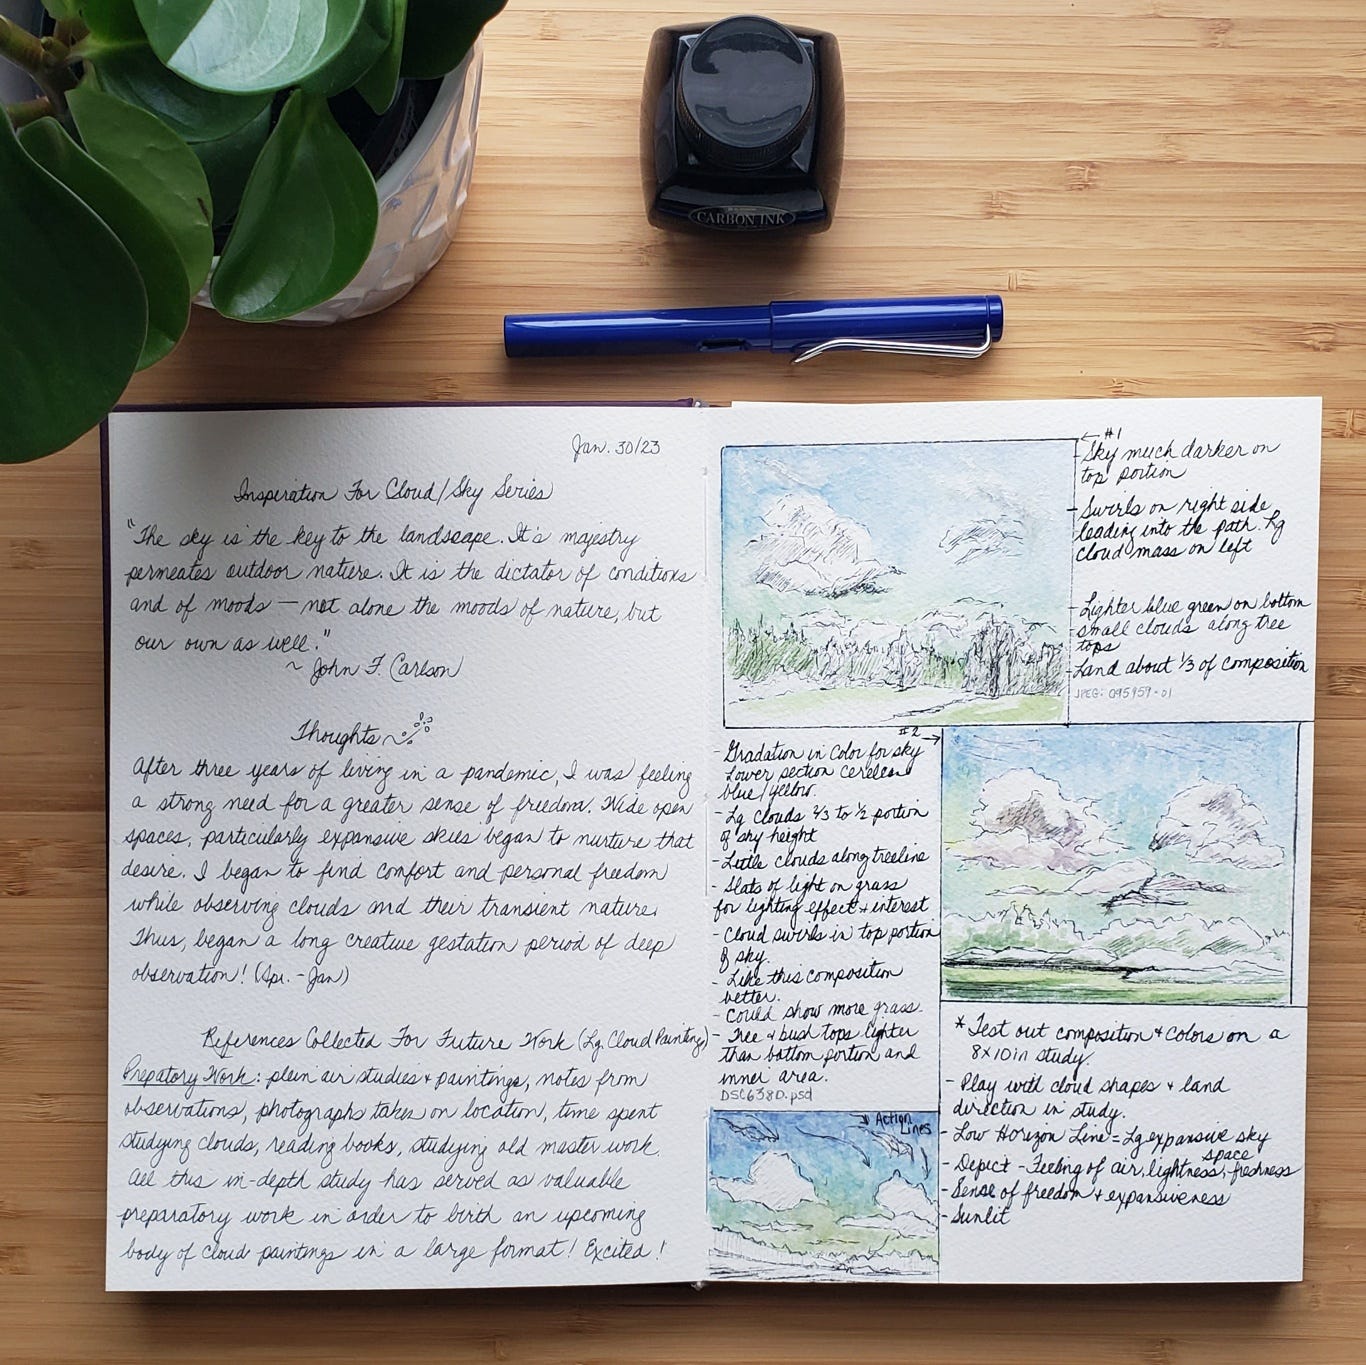 CARBON INK
Jan. 30/23
Inspiration For Cloud/Sky Series
"The sky is the key to the landscape. It's majestry
permeates outdoor nature. It is the dictator of conditions
and of moods — not alone the moods of nature, but
our own as well."
~ John F. Carlson
Thoughts
After three years of living in a pandemic, I was feeling
a strong need for a greater sense of freedom. Wide open
spaces, particularly expansive skies began to nurture that
desire. I began to find comfort and personal freedom
while observing clouds and their transient nature.
Thus, began a long creative gestation period of deep
observation! (Apr. - Jan)
References Collected For Future Work (Lg. Cloud Paintings)
Prepatory Work: plein air studies & paintings, notes from
observations, photographs taken on location, time spent
studying clouds, reading books, studying old master work.
All this in-depth study has served as valuable
preparatory work in order to birth an upcoming
body of cloud paintings in a large format! Excited!
#1
- Sky much darker on
top portion
- Swirls on right side
leading into the path. Lg
cloud mass on left
- Lighter blue green on bottom
- small clouds along tree
tops
- Land about 1/3 of composition
JPEG: 095959-01
#2
- Gradation in color for sky
Lower section cerelean
blue/yellow.
- Lg clouds 2/3 to 1/2 portion
of sky height
- Little clouds along treeline
- Slats of light on grass
for lighting effect & interest
- Cloud swirls in top portion
of sky.
- Like this composition
better.
- Could show more grass.
- Tree & bush tops lighter
than bottom portion and
inner area.
DSC6380.psd
Action
Lines
* Test out composition & colors on a
8x10in study.
- Play with cloud shapes & land
direction in study.
- Low Horizon Line = Lg expansive sky
space
- Depict - Feeling of air, lightness, freshness
- Sense of freedom & expansiveness
- Sunlit